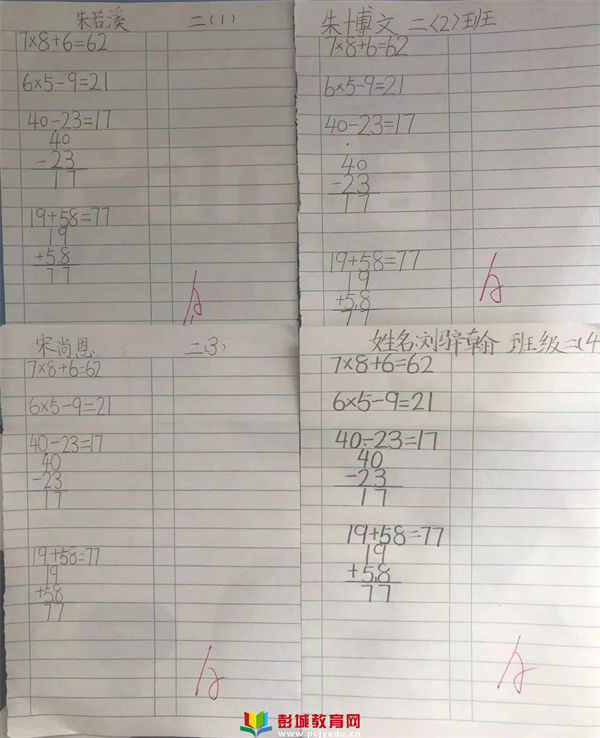 朱若溪 二(1)
7×8+6=62
6×5-9=21
40-23=17
40
-23
17
19+58=77
19
+58
77
A
朱博文 二(2)班
7×8+6=62
6×5-9=21
40-23=17
40
-23
17
19+58=77
19
+58
77
A
宋尚恩 二(3)
7×8+6=62
6×5-9=21
40-23=17
40
-23
17
19+58=77
19
+58
77
A
姓名:刘骍翰 班级二(4
7×8+6=62
6×5-9=21
40-23=17
40
-23
17
19+58=77
19
+58
77
A
彭城教育网
www.pcjyedu.cn